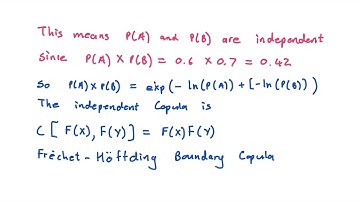 This means P(A) and P(B) are independent
since P(A) × P(B) = 0.6 × 0.7 = 0.42
So P(A) × P(B) = exp(- ln(P(A)) + [- ln(P(B)))
The independent Copula is
C[F(X), F(Y)] = F(X)F(Y)
Fréchet - Höffding Boundary Copula